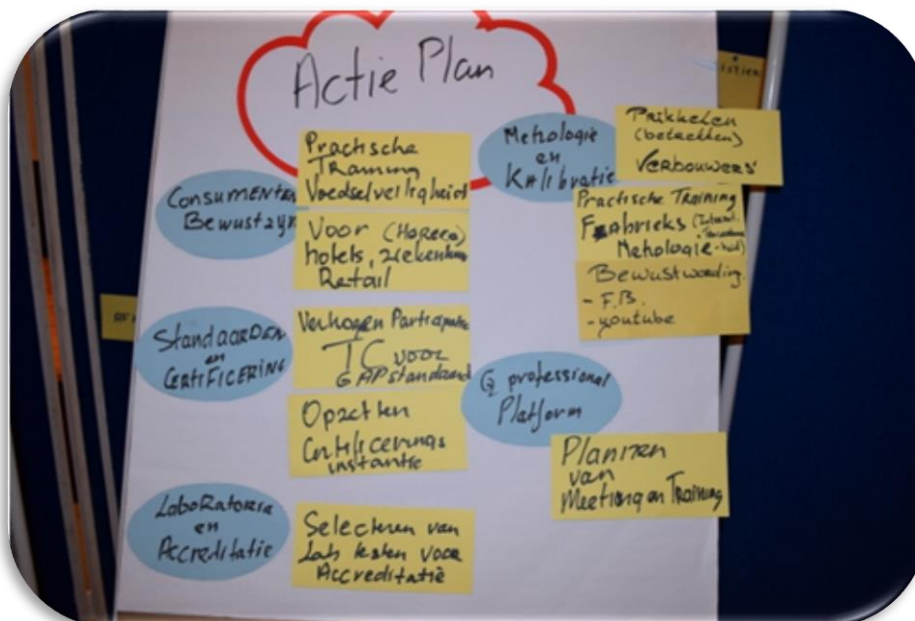 Actie Plan
Consumenten
Bewustzijn
Practische
Training
Voedselveiligheid
Voor (Horeca)
hotels, ziekenhuis
Retail
Standaarden
en
Certificering
Verhogen Participatie
TC voor
GAP standaard
Opzetten
Certificerings
instantie
Laboratoria
en
Accreditatie
Selecteren van
Lab testen voor
Accreditatie
Metrologie
en
Kalibratie
Prikkelen
(betrekken)
Verbouwers
Practische Training
Fabrieks
Metrologie
Bewustwording
- F.B.
- youtube
Q professional
Platform
Plannen
van
Meeting en Training